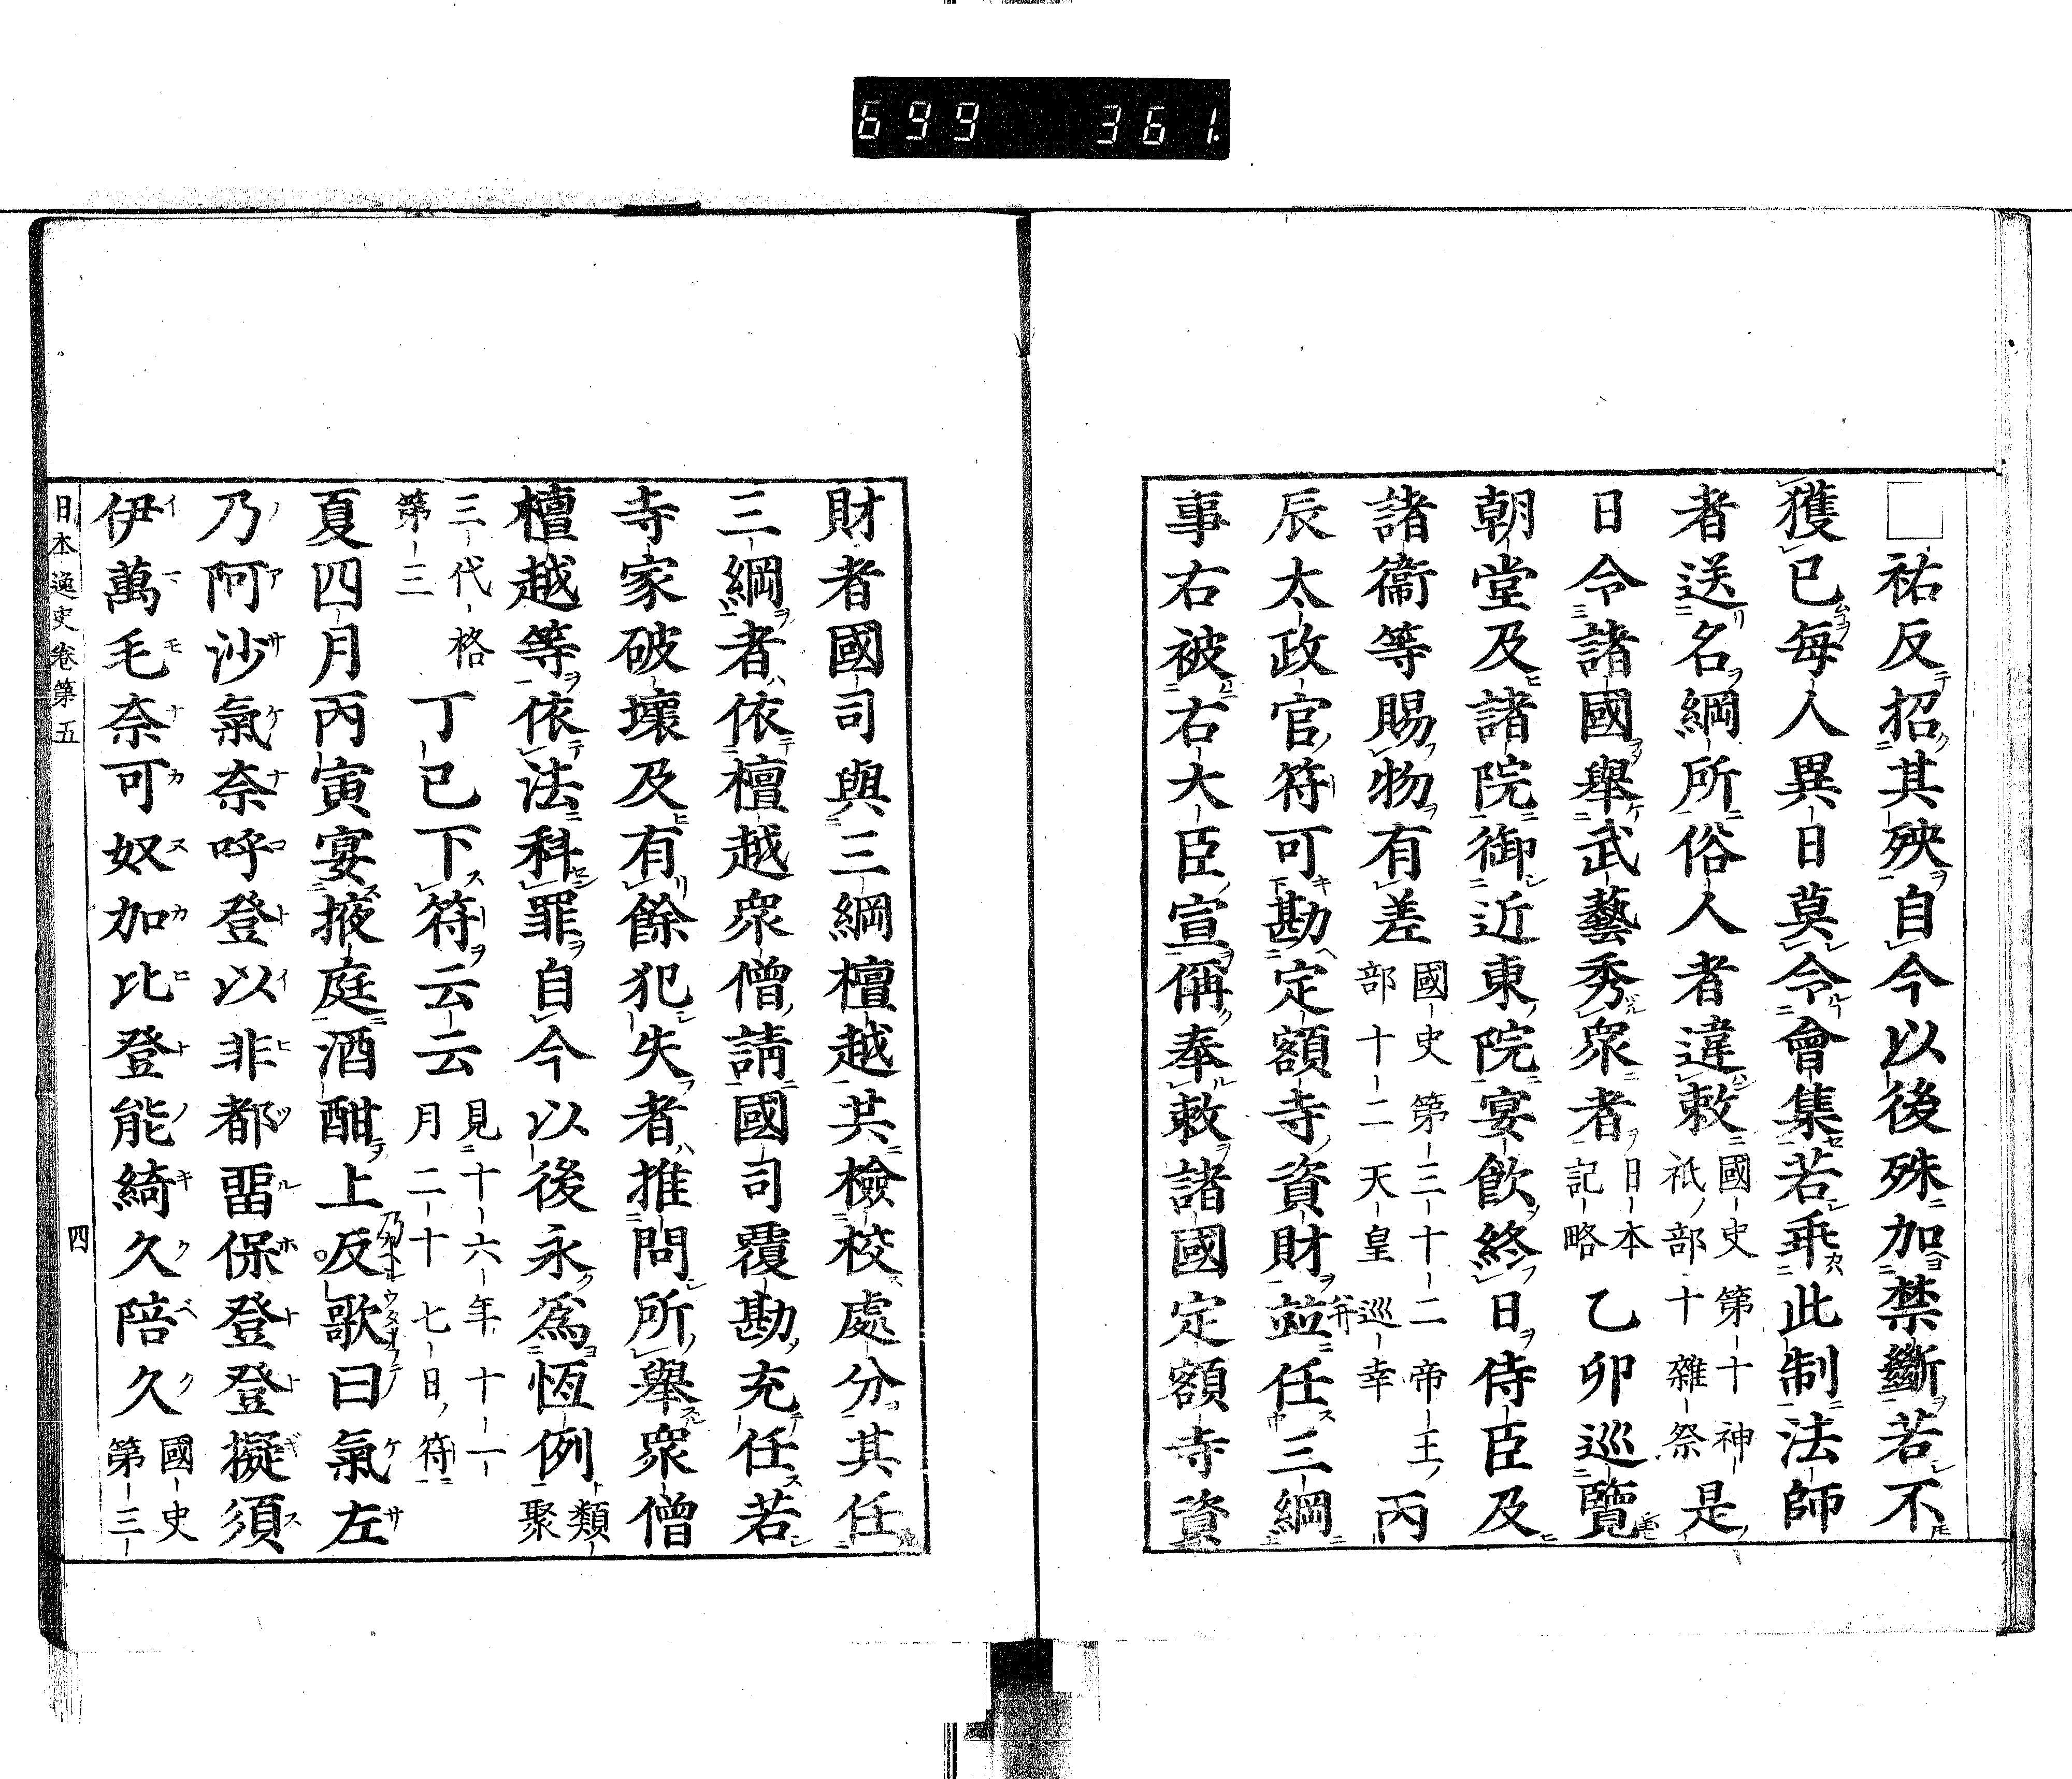 699 361.
□祐反招其殃自今以後殊加禁斷若不
獲已毎人異日莫令會集若乖此制法師
者送名綱所俗人者違敕國史第十神祇部十雜祭是
日令諸國舉武藝秀衆者日本記略乙卯巡覽
朝堂及諸院御近東院宴飲終日侍臣及
諸衞等賜物有差國史第三十二帝王部十二天皇巡幸丙
辰太政官符可勘定額寺資財並任三綱
事右被右大臣宣偁奉敕諸國定額寺資
財者國司與三綱檀越共檢校處分其任
三綱者依檀越衆僧請國司覆勘充任若
寺家破壞及有餘犯失者推問所舉衆僧
檀越等依法科罪自今以後永爲恆例類聚
三代格第三丁巳下符云云見十六年十一月二十七日符
夏四月丙寅宴掖庭酒酣上反歌曰氣左
乃阿沙氣奈呼登以非都留保登登擬須
伊萬毛奈可奴加比登能綺久陪久國史第三
日本逸史卷第五
四